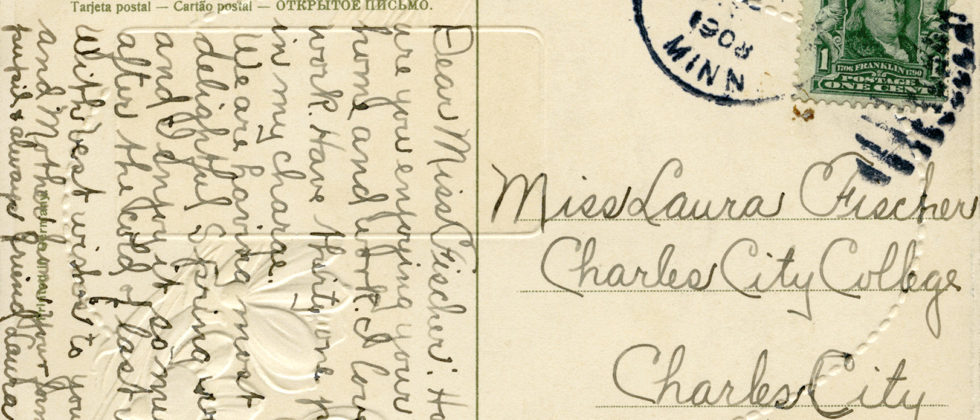 Tarjeta postal — Cartão postal — ОТКРЫТОЕ ПИСЬМО.
Dear Miss Fischer: Ho
are you enjoying your
home and work. I lov
work. Have thirty one p
in my charge.
We are having most
delightful Spring w
and I enjoy it so mu
after the cold of last
With best wishes to you
and Mother your form
pupil & always friend Laura
MINN
1
1706 FRANKLIN 1790
POSTAGE
ONE CENT
Miss Laura Fischer
Charles City College
Charles City